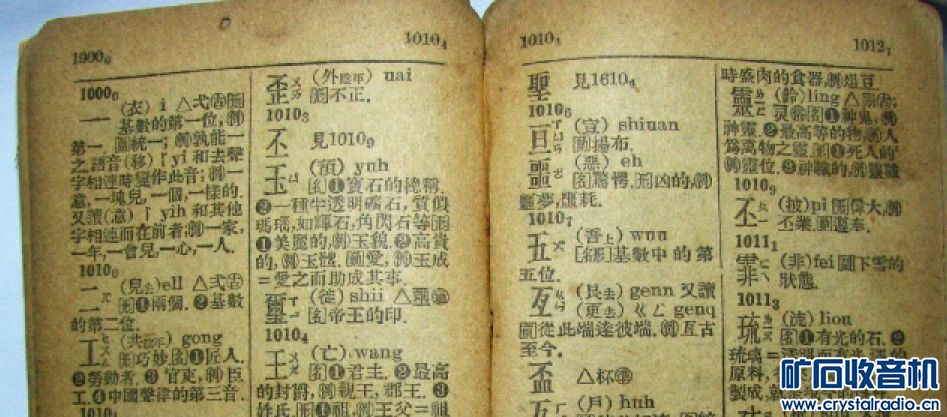 1000₀
1010₄
1000₀
一 (衣) i △弌
基數的第一位,
第一. 統一;
之語音(移)「yi 和去聲
字相連時變作此音;
意,一塊兒,一個,一樣的.
又讀(意)「yih 和其他
字相連而在前者; 一家,
一年,一會兒,一心,一人.
1010₀
二 (兒去) ell △弍
兩個. ❷基數
的第二位.
工 (共陰平) gong
巧妙 ❶匠人.
❷勞動者. ❸官吏, 臣
工. ❹中國聲律的第三音.
1010₄
歪 (外陰平) uai
不正.
1010₃
丕 見1010₉
玉 (預) yuh
❶寶石的總稱.
❷一種半透明礦石,質似
瑪瑙,如輝石,角閃石等
❶美麗的, 玉貌. ❷高貴
的, 玉體. 愛, 王成
=愛之而助成其事.
璽 (徙) shii △
帝王的印.
1010₄
王 (亡) wang
❶君主. ❷最高
的封爵, 親王,郡王. ❸
姓氏. ❶祖, 王父=祖
1010₄
1012₁
聖 見1610₄
1010₆
亘 (宣) shiuan
揚布.
噩 (惡) eh
驚愕. 凶的,
噩夢,噩耗.
1010₇
五 (吾上) wuu
基數中的第
五位.
亙 (艮去) genn 又讀
(更去) genq
從此端達彼端. 亙古
至今.
盃 △杯
互 (戶) huh
時盛肉的食器,
靈 (鈴) ling △
灵 ❶神鬼,
神靈. ❷最高等的物, 人
爲萬物之靈 ❶死人的
靈位. ❷神驗的, 靈驗
1010₉
丕 (披) pi 偉大,
丕業. 遵奉.
1011₁
霏 (非) fei 下雪的
狀態.
1011₃
琉 (流) liou
❶有光的石. ❷
琉璃=透明
原料,
製成,
矿石收音机
www.crystalradio.cn